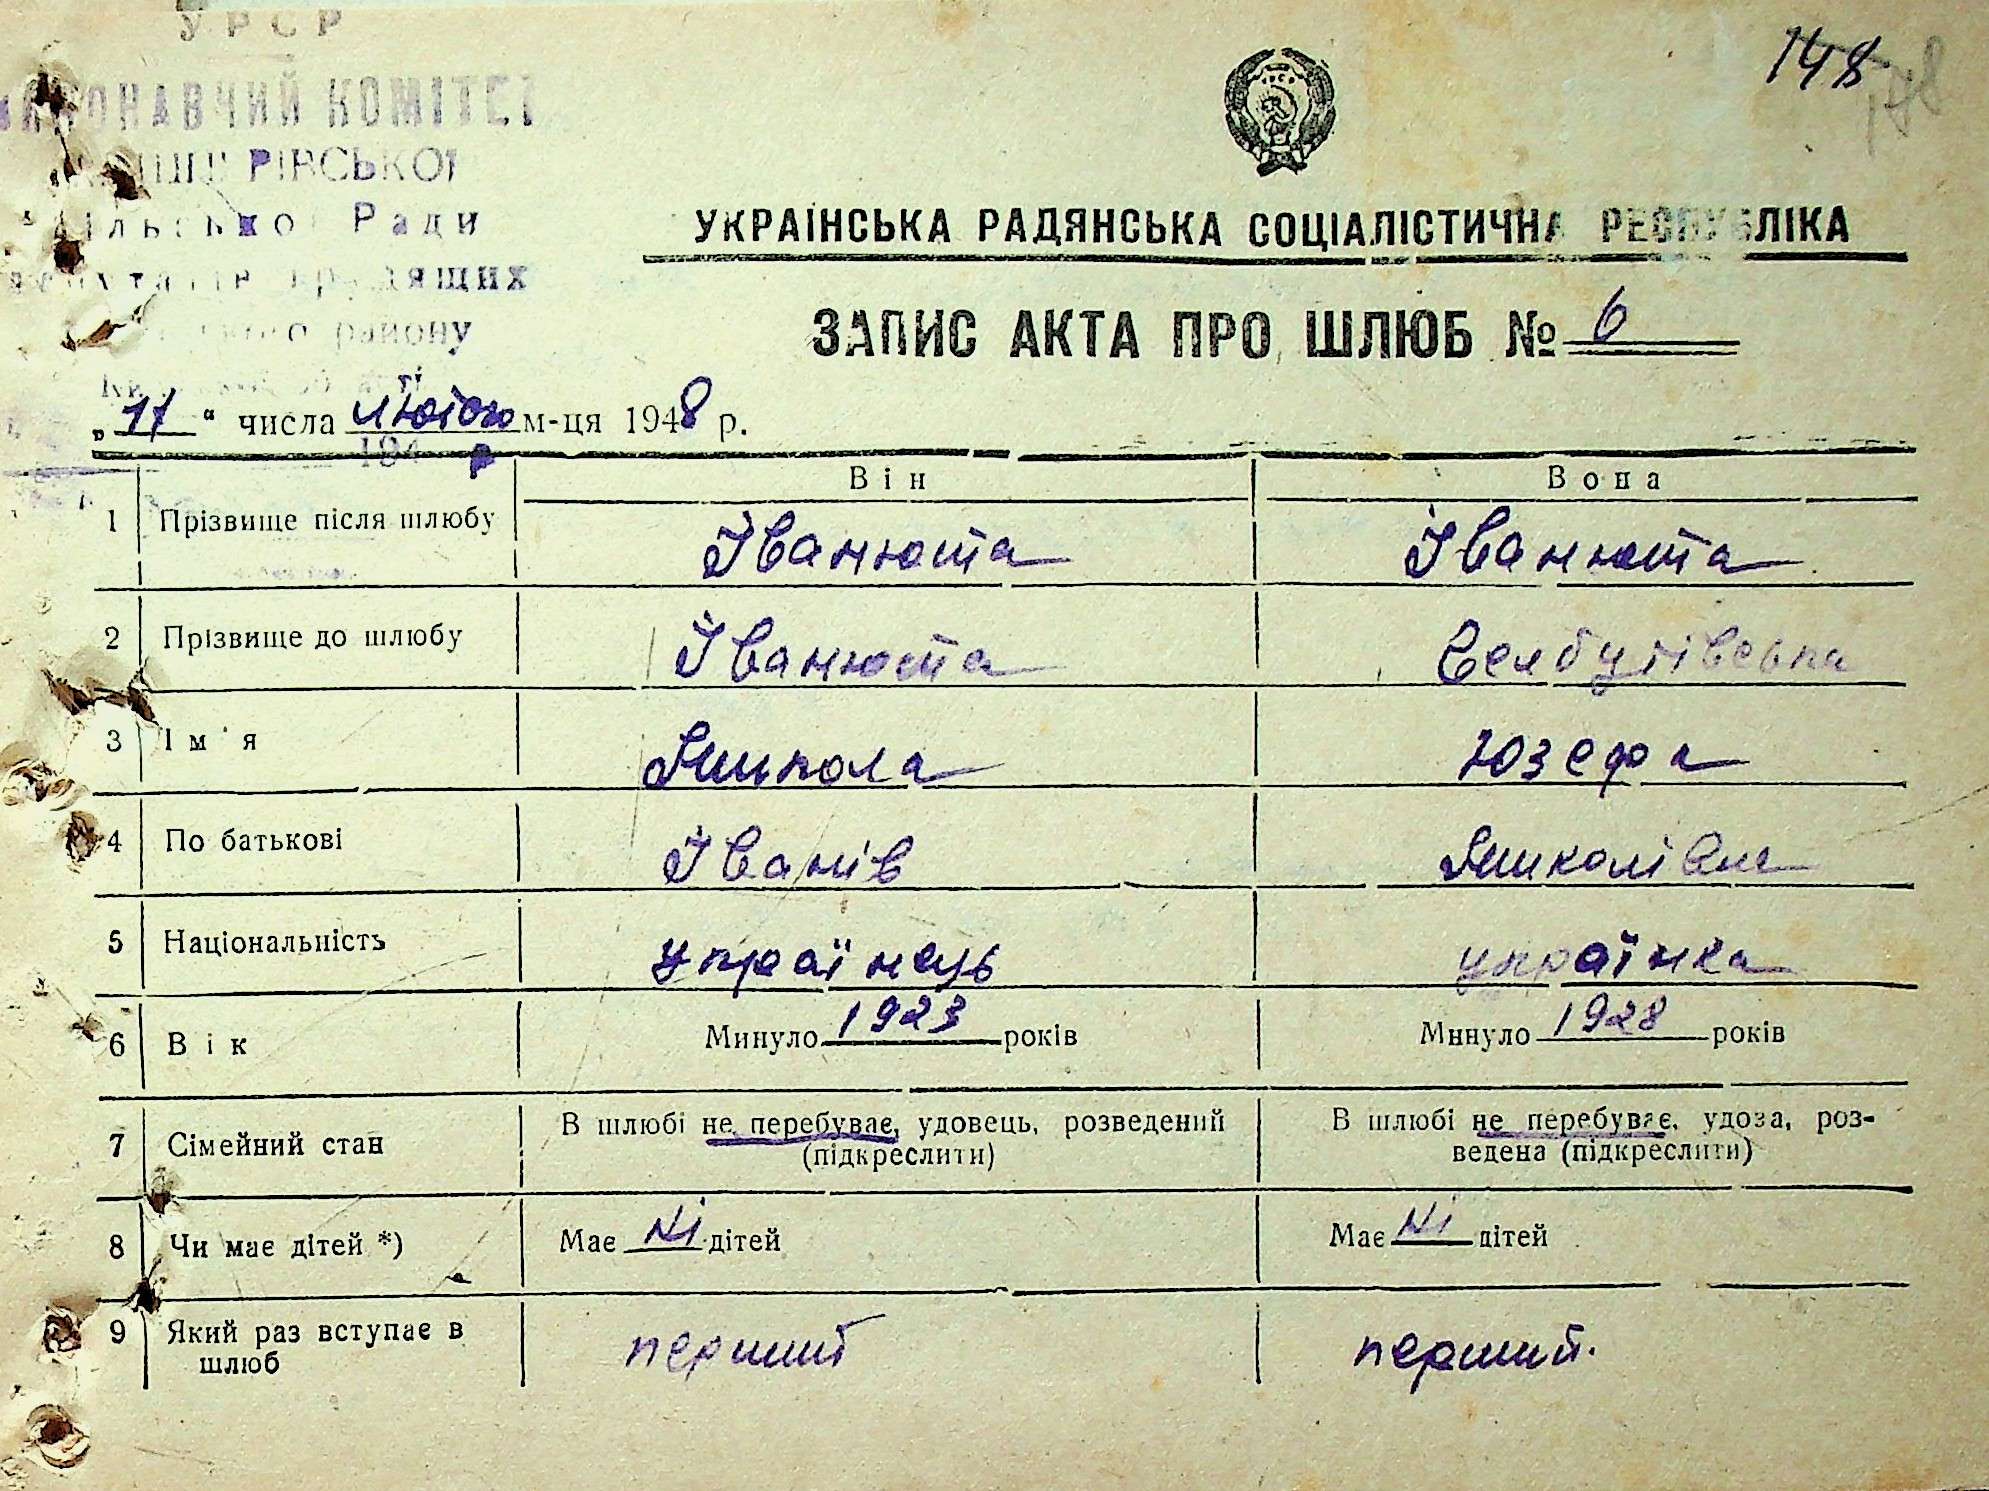 УРСР
148
148
ВИКОНАВЧИЙ КОМІТЕТ
РІВСЬКОЇ
Сільської Ради
депутатів трудящих
району
УКРАЇНСЬКА РАДЯНСЬКА СОЦІАЛІСТИЧНА РЕСПУБЛІКА
ЗАПИС АКТА ПРО ШЛЮБ № 6
„ 17 “ числа лютого м-ця 1948 р.
194
Він Вона
1 Прізвище після шлюбу Іванюта Іванюта
2 Прізвище до шлюбу Іванюта
3 Ім'я Микола Юзефа
4 По батькові Іванів Миколівна
5 Національність українець українка
6 Вік Минуло 1923 років Минуло 1928 років
7 Сімейний стан В шлюбі не перебуває, удовець, розведений (підкреслити) В шлюбі не перебуває, удова, розведена (підкреслити)
8 Чи має дітей *) Має Ні дітей Має Ні дітей
9 Який раз вступає в шлюб перший перший.